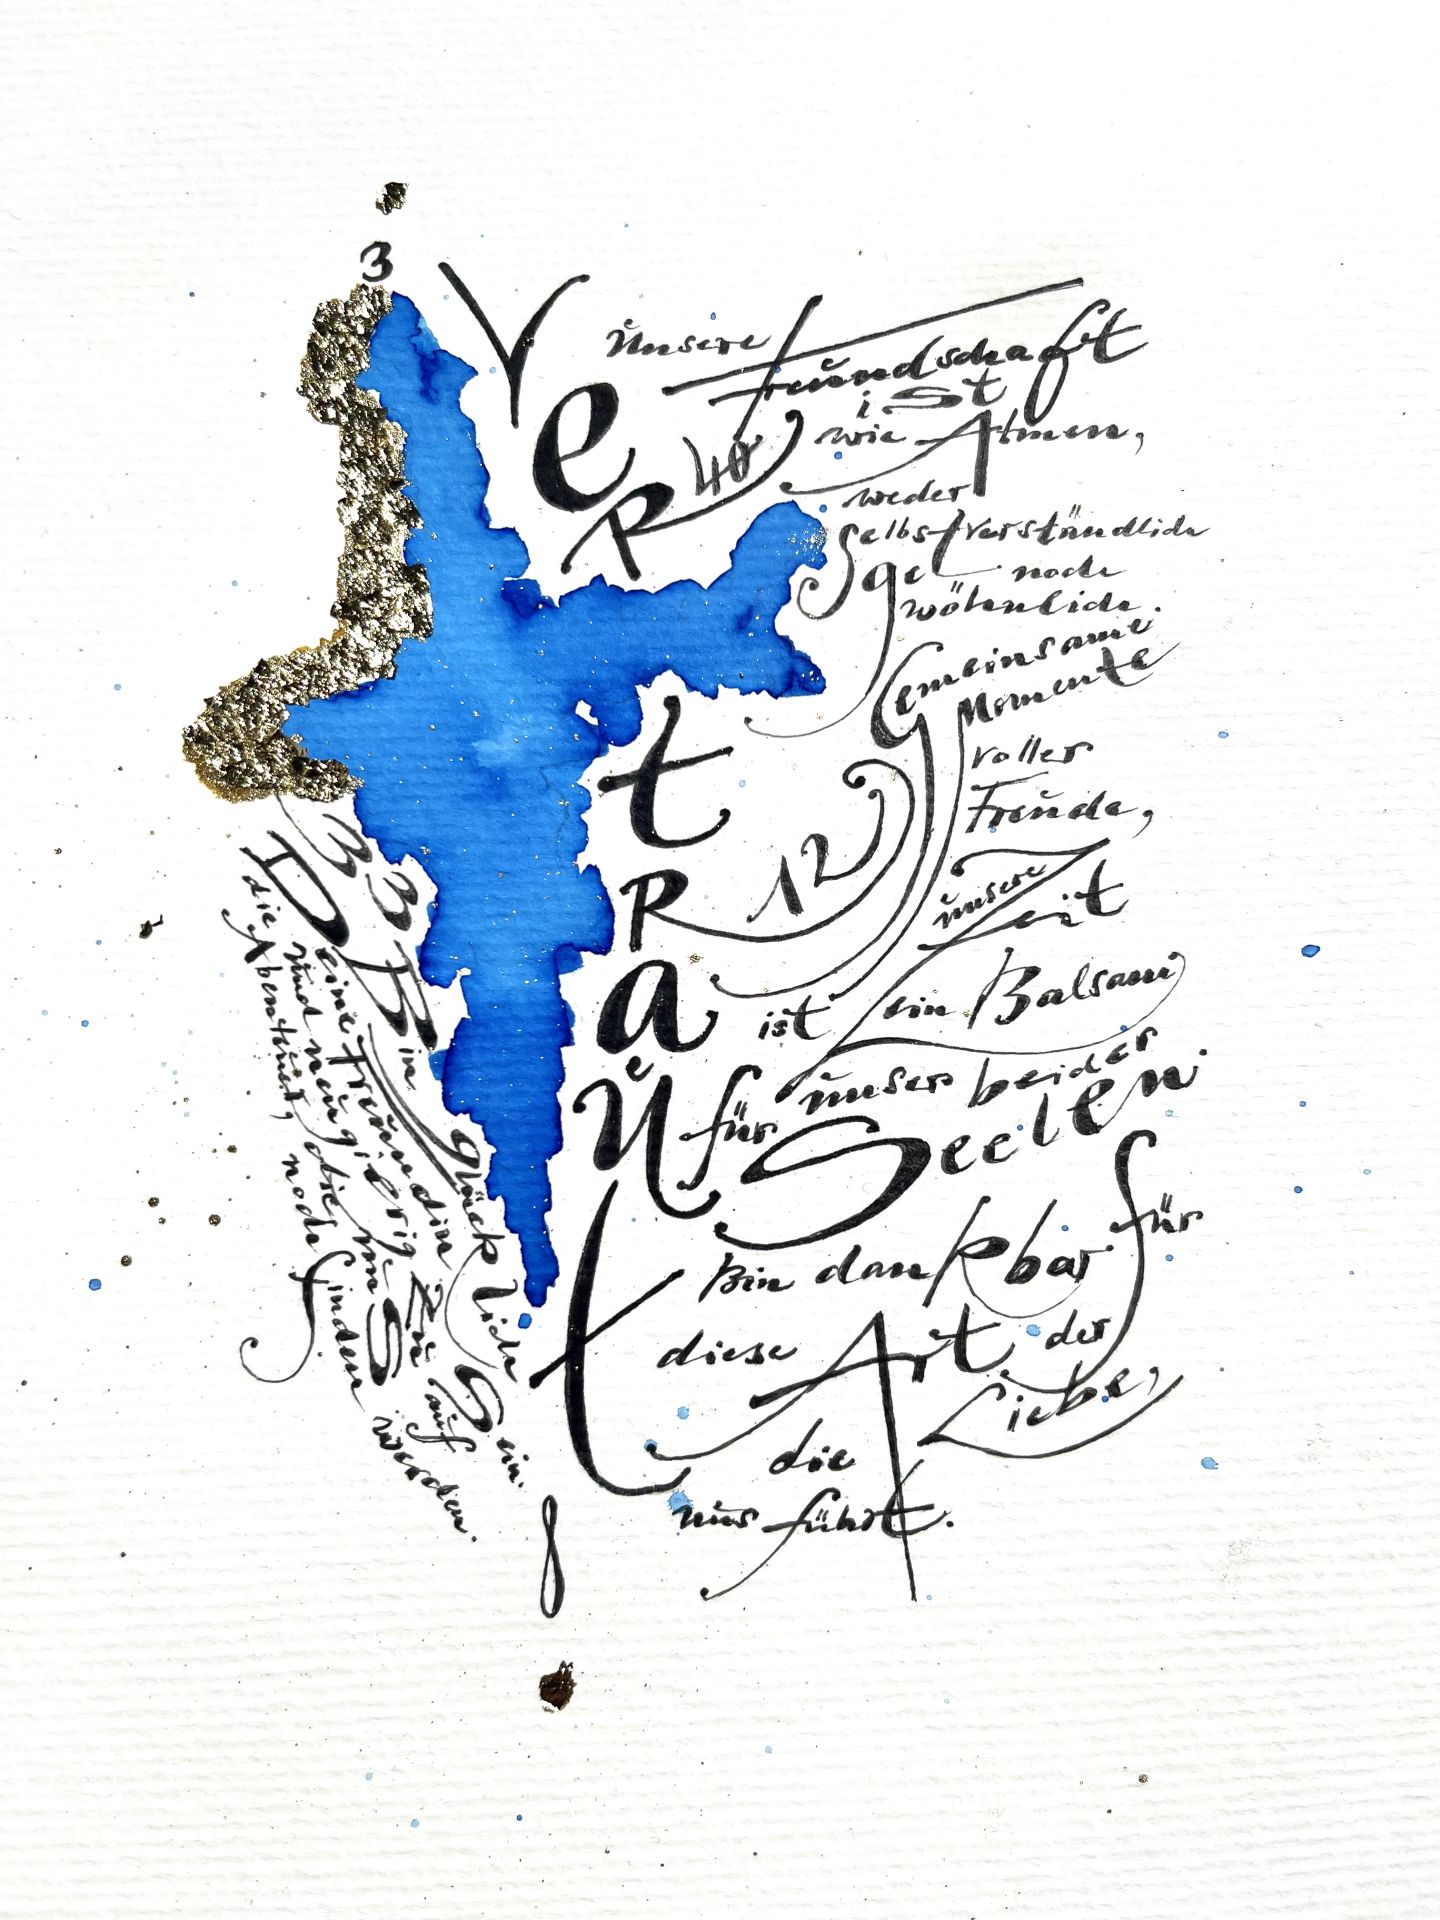 3
VeRtRaut
40
12
unsere
Freundschaft
ist
wie Atmen,
weder
Selbstverständlich
noch
gewöhnlich.
Gemeinsame
Momente
voller
Freude,
unsere
Zeit
ist ein Balsam
für unser beider
Seelen.
Bin dankbar für
diese Art der
Liebe,
die
uns führt.
33
Bin glücklich
Deine Freundin Zu Sein.
und neugierig auf
die Abenteuer, die uns
noch finden werden.
8